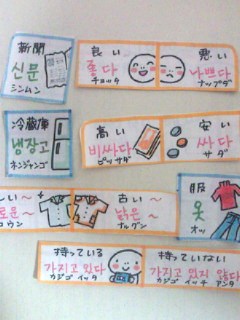 新聞
신문
シンムン
良い
좋다
チョッタ
悪い
나쁘다
ナップダ
冷蔵庫
냉장고
ネンジャンゴ
高い
비싸다
ピッサダ
安い
싸다
サダ
しい〜
로운〜
ロウン
古い〜
낡은〜
ナルグン
服
옷
オッ
持っている
가지고 있다
カジゴ イッタ
持っていない
가지고 있지 않다
カジゴ イッチ アンタ